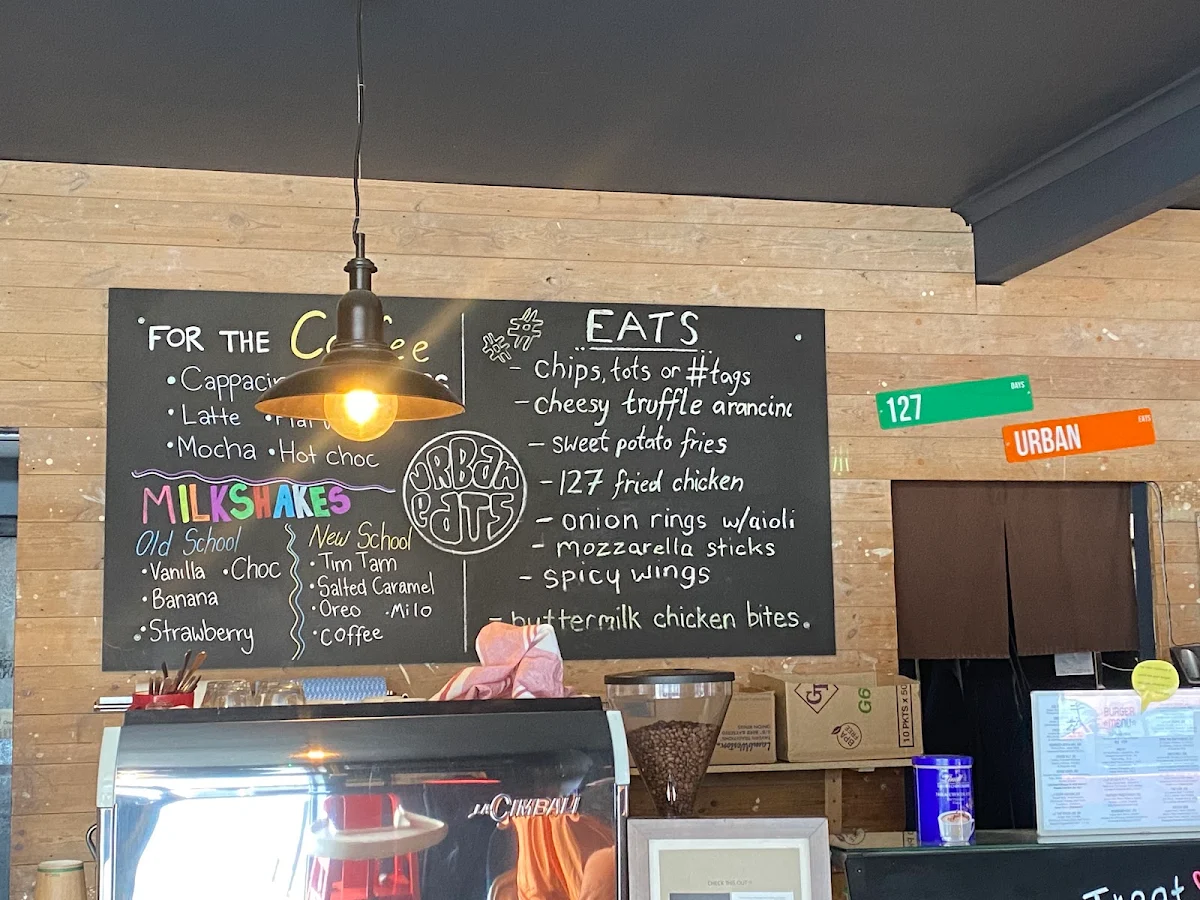 FOR THE
• Latte
• Mocha • Hot choc
MILKSHAKES
Old School
• Vanilla • Choc
• Banana
• Strawberry
New School
• Tim Tam
• Salted Caramel
• Oreo • Milo
• Coffee
URBan
eaTS
# # EATS
- Chips, tots or #tags
- cheesy truffle arancini
- sweet potato fries
- 127 fried chicken
- onion rings w/aioli
- mozzarella sticks
- spicy wings
- buttermilk chicken bites.
127 BAYS
URBAN EATS
LA CIMBALI
G6
10 PKTS X 50
BPA FREE
CHECK THIS OUT
Treat